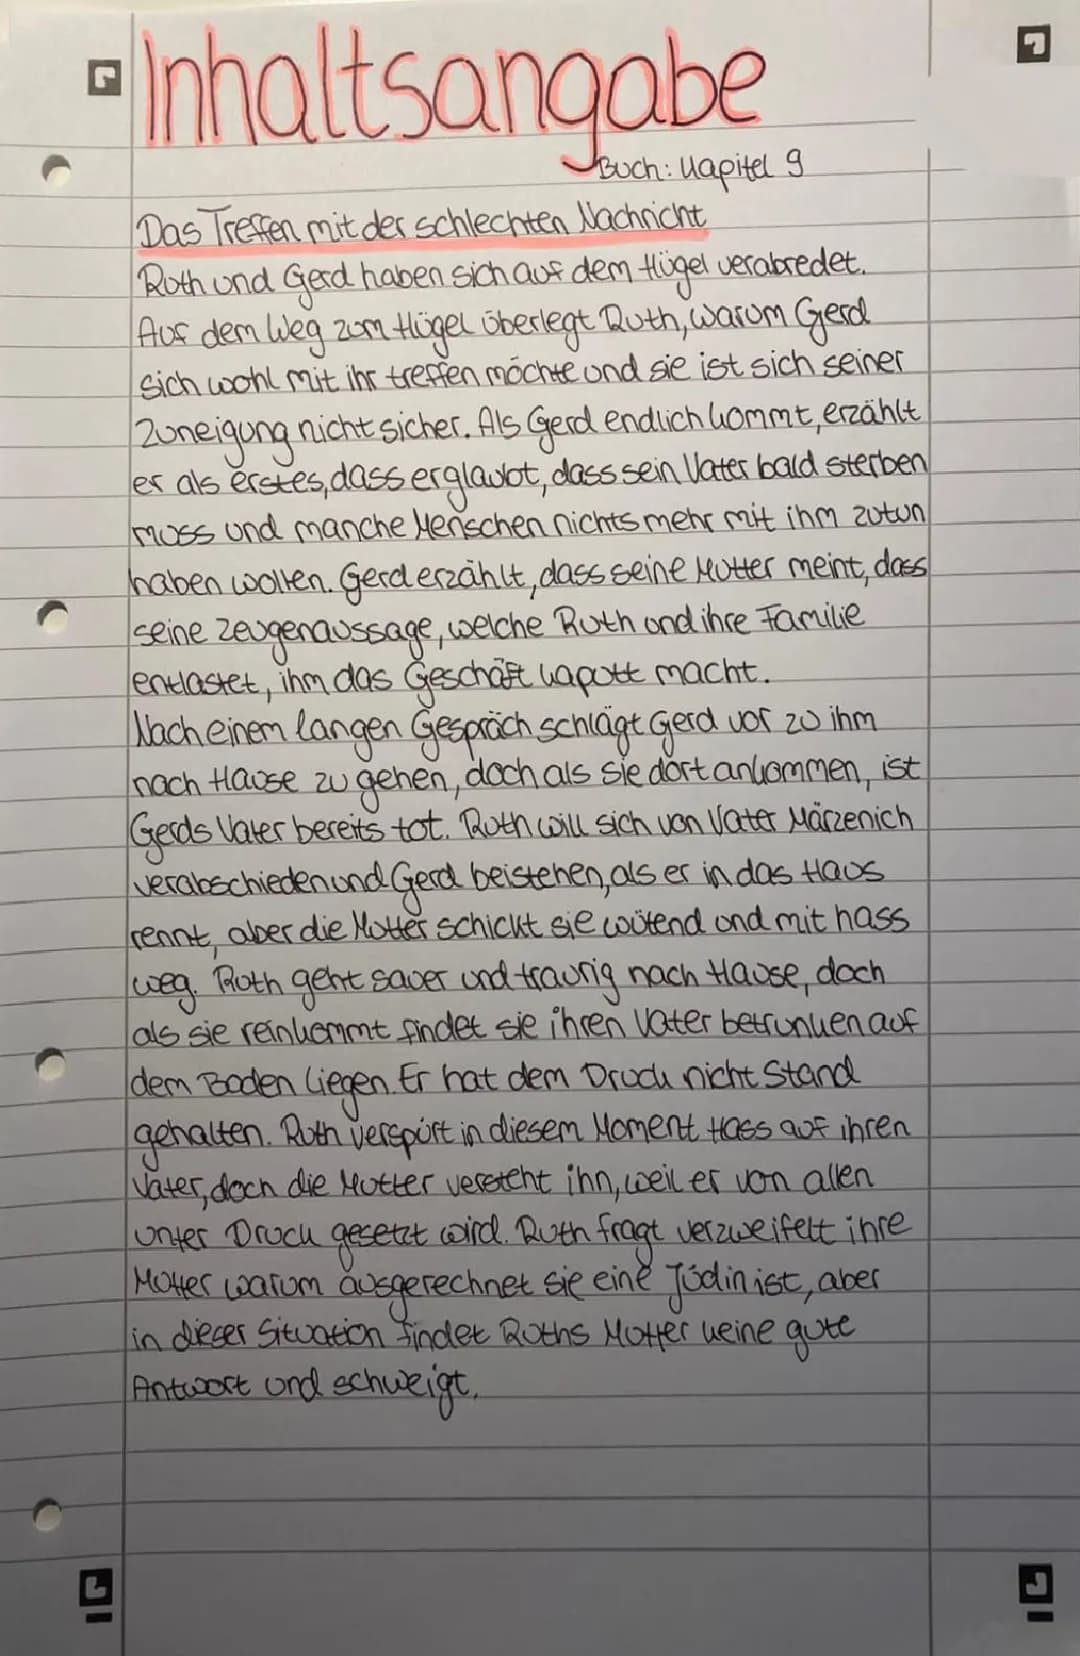 Inhaltsangabe
Buch: Kapitel 9
Das Treffen mit der schlechten Nachricht
Ruth und Gerd haben sich auf dem Hügel verabredet.
Auf dem Weg zum Hügel überlegt Ruth, warum Gerd
sich wohl mit ihr treffen möchte und sie ist sich seiner
Zuneigung nicht sicher. Als Gerd endlich kommt, erzählt
er als erstes, dass er glaubt, dass sein Vater bald sterben
muss und manche Menschen nichts mehr mit ihm zutun
haben wollen. Gerd erzählt, dass seine Mutter meint, dass
seine Zeugenaussage, welche Ruth und ihre Familie
entlastet, ihm das Geschäft kaputt macht.
Nach einem langen Gespräch schlägt Gerd vor zu ihm
nach Hause zu gehen, doch als sie dort ankommen, ist
Gerds Vater bereits tot. Ruth will sich von Vater Märzenich
verabschieden und Gerd beistehen, als er in das Haus
rennt, aber die Mutter schickt sie wütend und mit hass
weg. Ruth geht sauer und traurig nach Hause, doch
als sie reinkommt findet sie ihren Vater betrunken auf
dem Boden liegen. Er hat dem Druck nicht Stand
gehalten. Ruth verspürt in diesem Moment Hass auf ihren
Vater, doch die Mutter versteht ihn, weil er von allen
unter Druck gesetzt wird. Ruth fragt verzweifelt ihre
Mutter warum ausgerechnet sie eine Jüdin ist, aber
in dieser Situation findet Ruths Mutter keine gute
Antwort und schweigt.